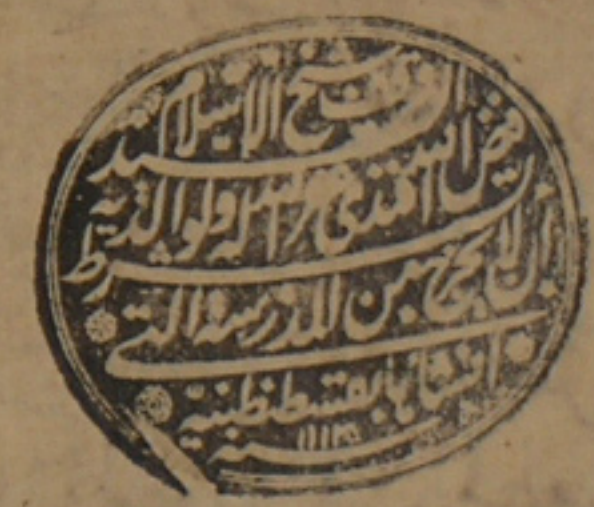 وقف شيخ الاسلام السيد
فيض الله افندى غفر الله له ولوالديه
بشرط أن لا يخرج من المدرسة التى
انشاها بقسطنطينية
سنه ١١١٣